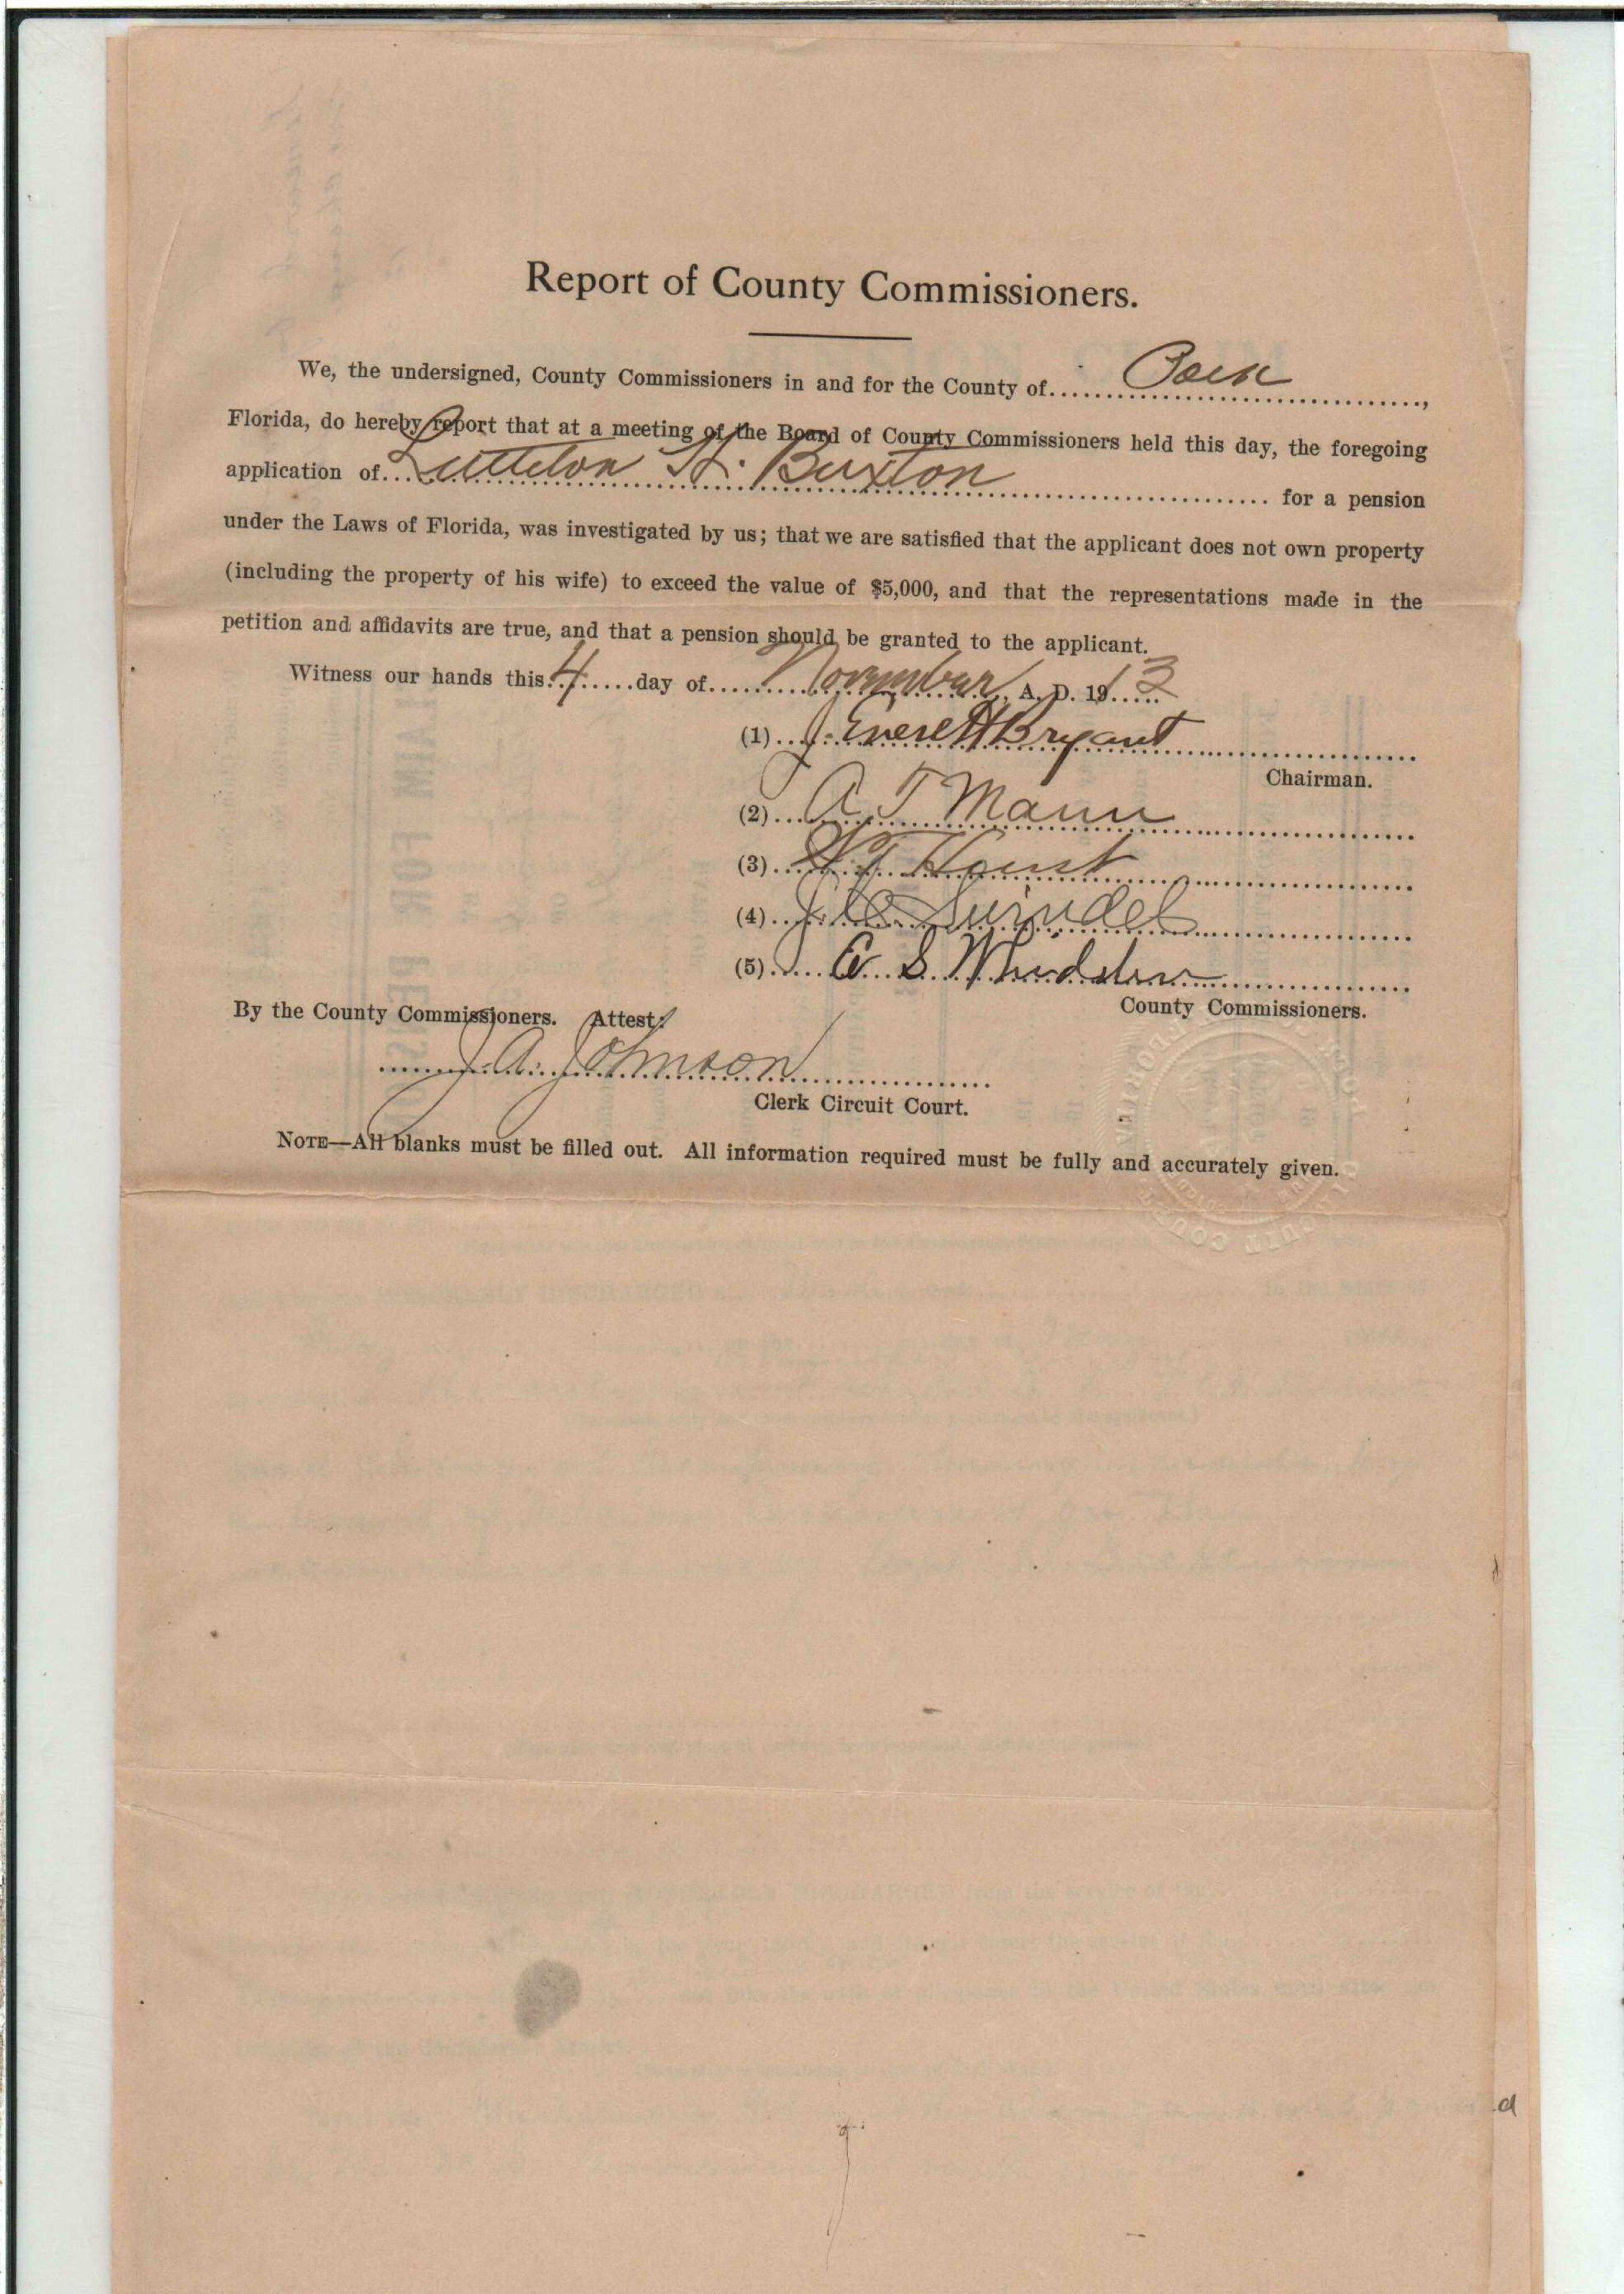 Report of County Commissioners.
We, the undersigned, County Commissioners in and for the County of Polk,
Florida, do hereby report that at a meeting of the Board of County Commissioners held this day, the foregoing
application of Littleton H. Buxton for a pension
under the Laws of Florida, was investigated by us; that we are satisfied that the applicant does not own property
(including the property of his wife) to exceed the value of $5,000, and that the representations made in the
petition and affidavits are true, and that a pension should be granted to the applicant.
Witness our hands this 4 day of November, A. D. 1913
(1) J. Everett Bryant
Chairman.
(2) A T Mann
(3)
(4)
(5) E. S. Whidden
County Commissioners.
By the County Commissioners. Attest:
J. A. Johnson
Clerk Circuit Court.
NOTE—All blanks must be filled out. All information required must be fully and accurately given.